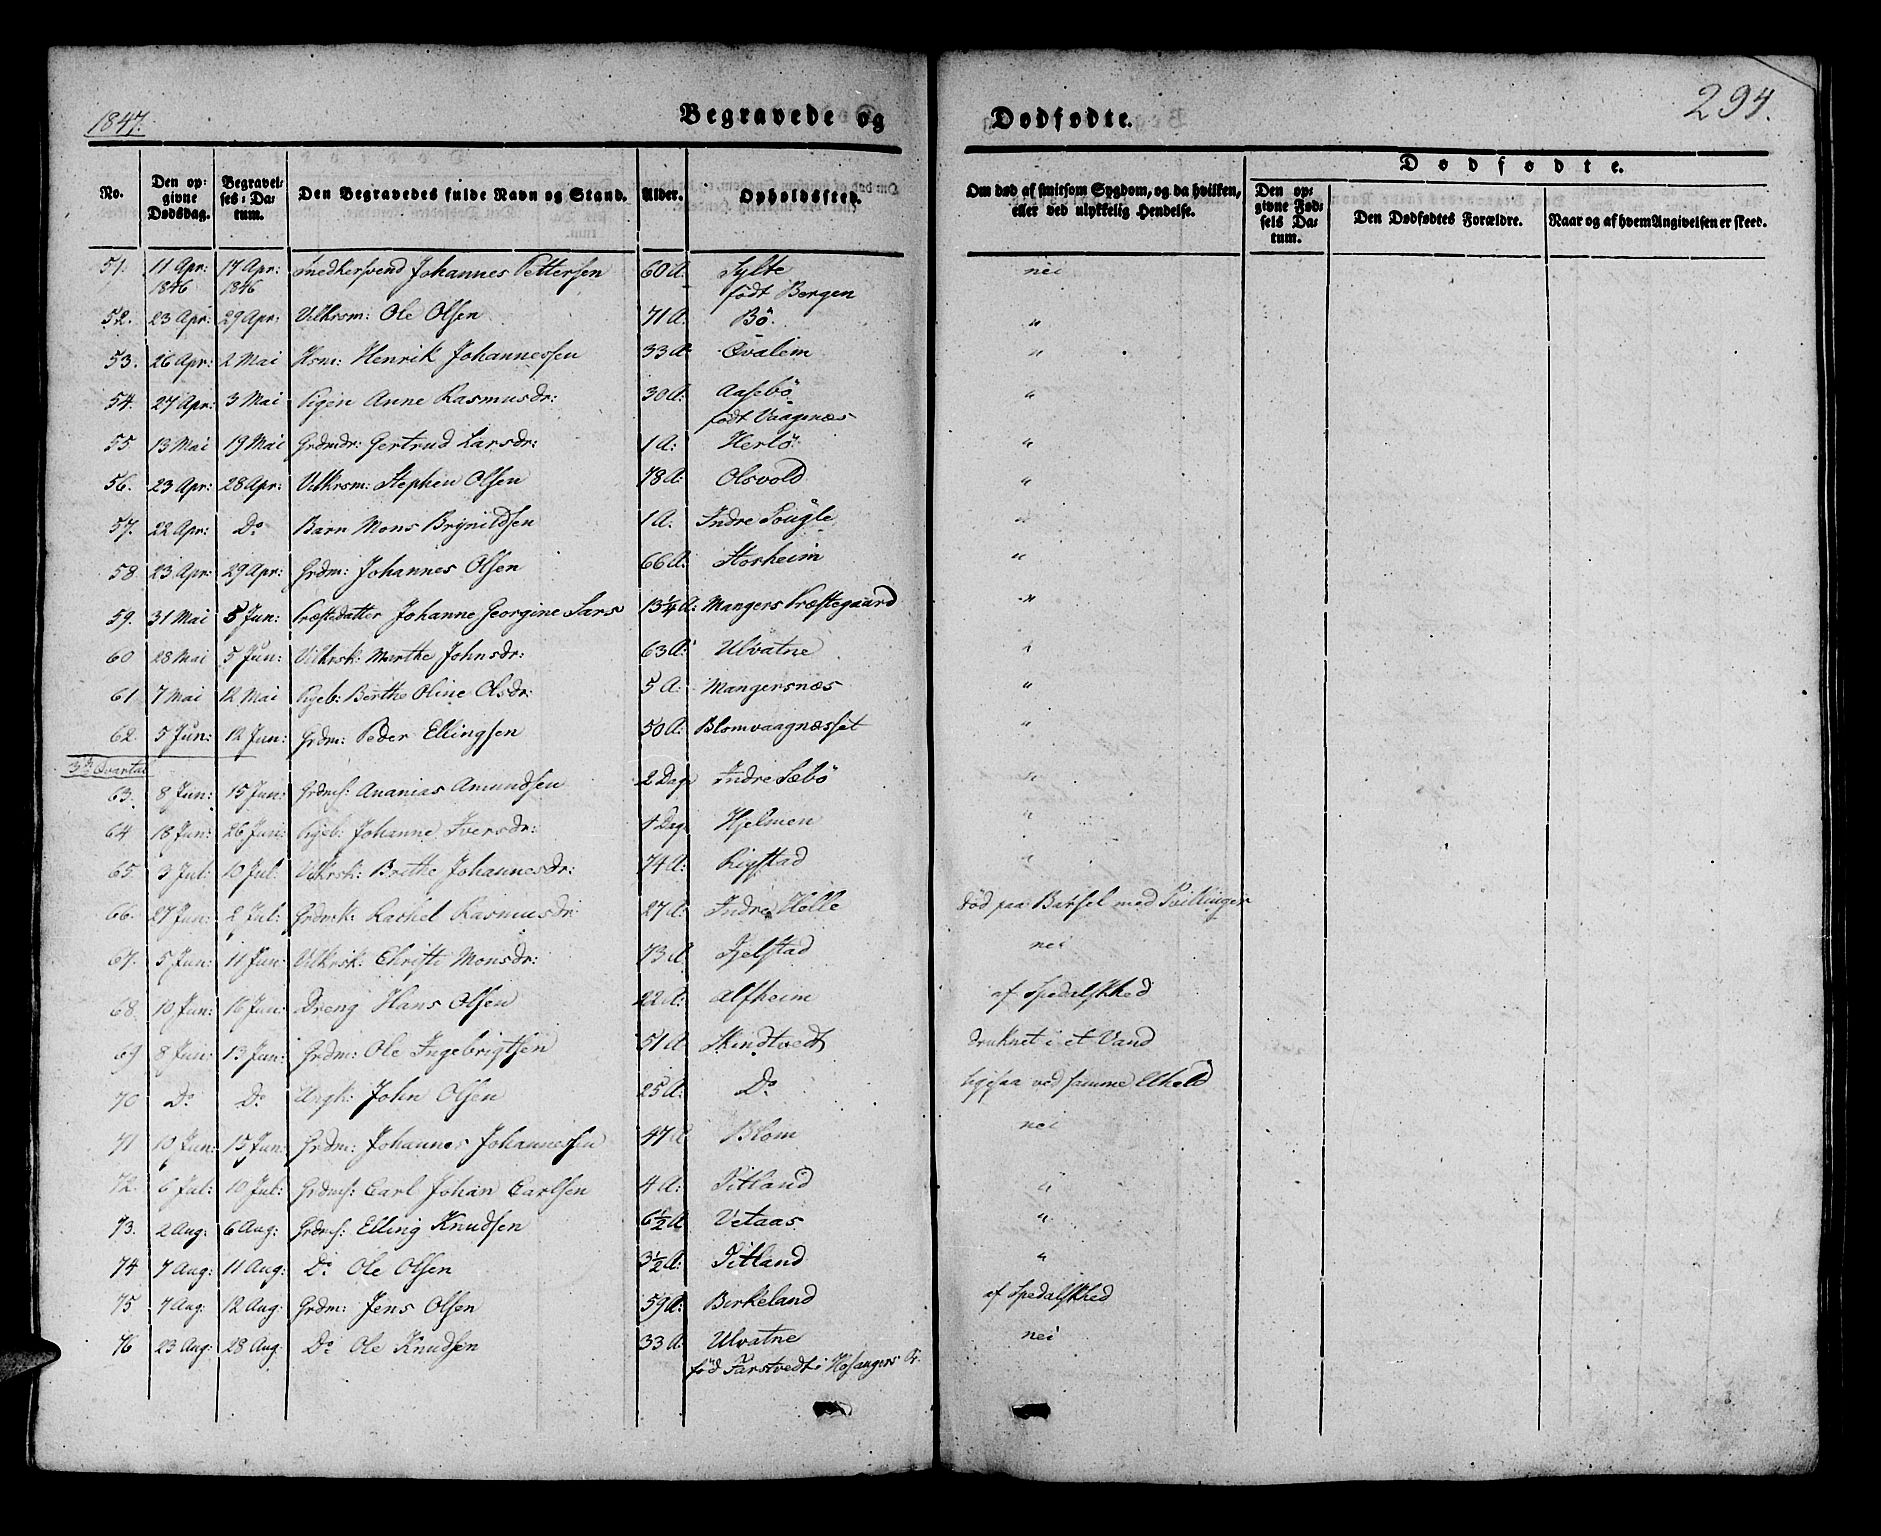 1847. Begravede og Dødfødte. 294.
Dødfødte.
No. | Den opgivne Dødsdag. | Begravelses-Datum. | Den Begravedes fulde Navn og Stand. | Alder. | Opholdssted. | Om død af smitsom Sygdom, og da hvilken, eller ved ulykkelig Hendelse. | Den opgivne Fødsels Datum. | Den Dødfødtes Forældre. | Naar og af hvem Angivelsen er skeed.
51. 11 Apr: 1846 17 Apr: 1846 Snedkersvend Johannes Pettersen 60 A. Sylte nei
født Bergen
52. 23 Apr: 29 Apr: Vilkrsm: Ole Olsen 71 A. Bö. "
53. 26 Apr: 2 Mai Hsm: Henrik Johannessen 33 A Qvalem "
54. 27 Apr: 3 Mai Pigen Anne Rasmusdr: 30 A. Aasebö "
født Vaagenæs
55 13 Mai 19 Mai Grdmdr: Gertrud Larsdr: 1 A: Herlö "
56. 23 Apr: 28 Apr: Vilkrsm: Stephen Olsen 78 A. Olsvold "
57. 22 Apr: Do Barn Mons Brynildsen 1 A. Indre "
58. 23 Apr: 29 Apr: Grdm: Johannes Olsen 66 A. Storheim "
59. 31 Mai 5 Jun: Præstedatter Johanne Georgine Sars 13 1/4 A: Mangers Præstegaard "
60 28 Mai 5 Jun: Vilkrsk: Marthe Johnsdr: 63 A: Ulvatne "
61 7 Mai 12 Mai Pigeb: Berthe Oline Olsdr: 5 A: Mangersnæs "
62. 5 Jun: 12 Jun: Grdm: Peder Ellingsen 50 A: Blomvaagnæsset "
3die Qvartal
63. 8 Jun: 15 Jun: Grdms: Ananias Amundsen 2 Dage Indre Sæbö "
64 18 Jun: 26 Jun: Pigeb: Johanne Iversdr: Dag Hjelmen "
65. 3 Jul: 10 Jul: Vilkrsk: Brithe Johannesdr: 74 A: Rigstad "
66. 27 Jun: 2 Jul: Grdmk: Rachel Rasmusdr 27 A: Indre Helle død paa Barsel med Tvillinger
67. 5 Jun: 11 Jun Vilkrsk: Christi Monsdr: 73 A. Fjelstad nei
68. 10 Jun: 16 Jun: Dreng Hans Olsen 22 A: Alfheim af Spedalskhed
69 8 Jun: 13 Jun: Grdm: Ole Ingebrigtsen 51 A Skindtvedt druknet i et Vand
70 Do Do Ungk: John Olsen 25 A: Do ligesaa ved samme Uheld
71 10 Jun: 15 Jun: Grdm: Johannes Johannessen 47 A Blom nei
72. 6 Jul: 10 Jul: Grdms: Carl Johan Carlsen 4 A: Titland "
73. 2 Aug: 6 Aug: Grdms: Elling Knudsen 6 1/2 A Vetaas "
74 7 Aug: 11 Aug: Do Ole Olsen 3 1/2 A: Titland "
75 7 Aug: 12 Aug: Grdm: Jens Olsen 59 A: Birkeland af Spedalskhed
76 23 Aug: 28 Aug: Do Ole Knudsen 33 A: Ulvatne nei
fød i Hosangers Pr.